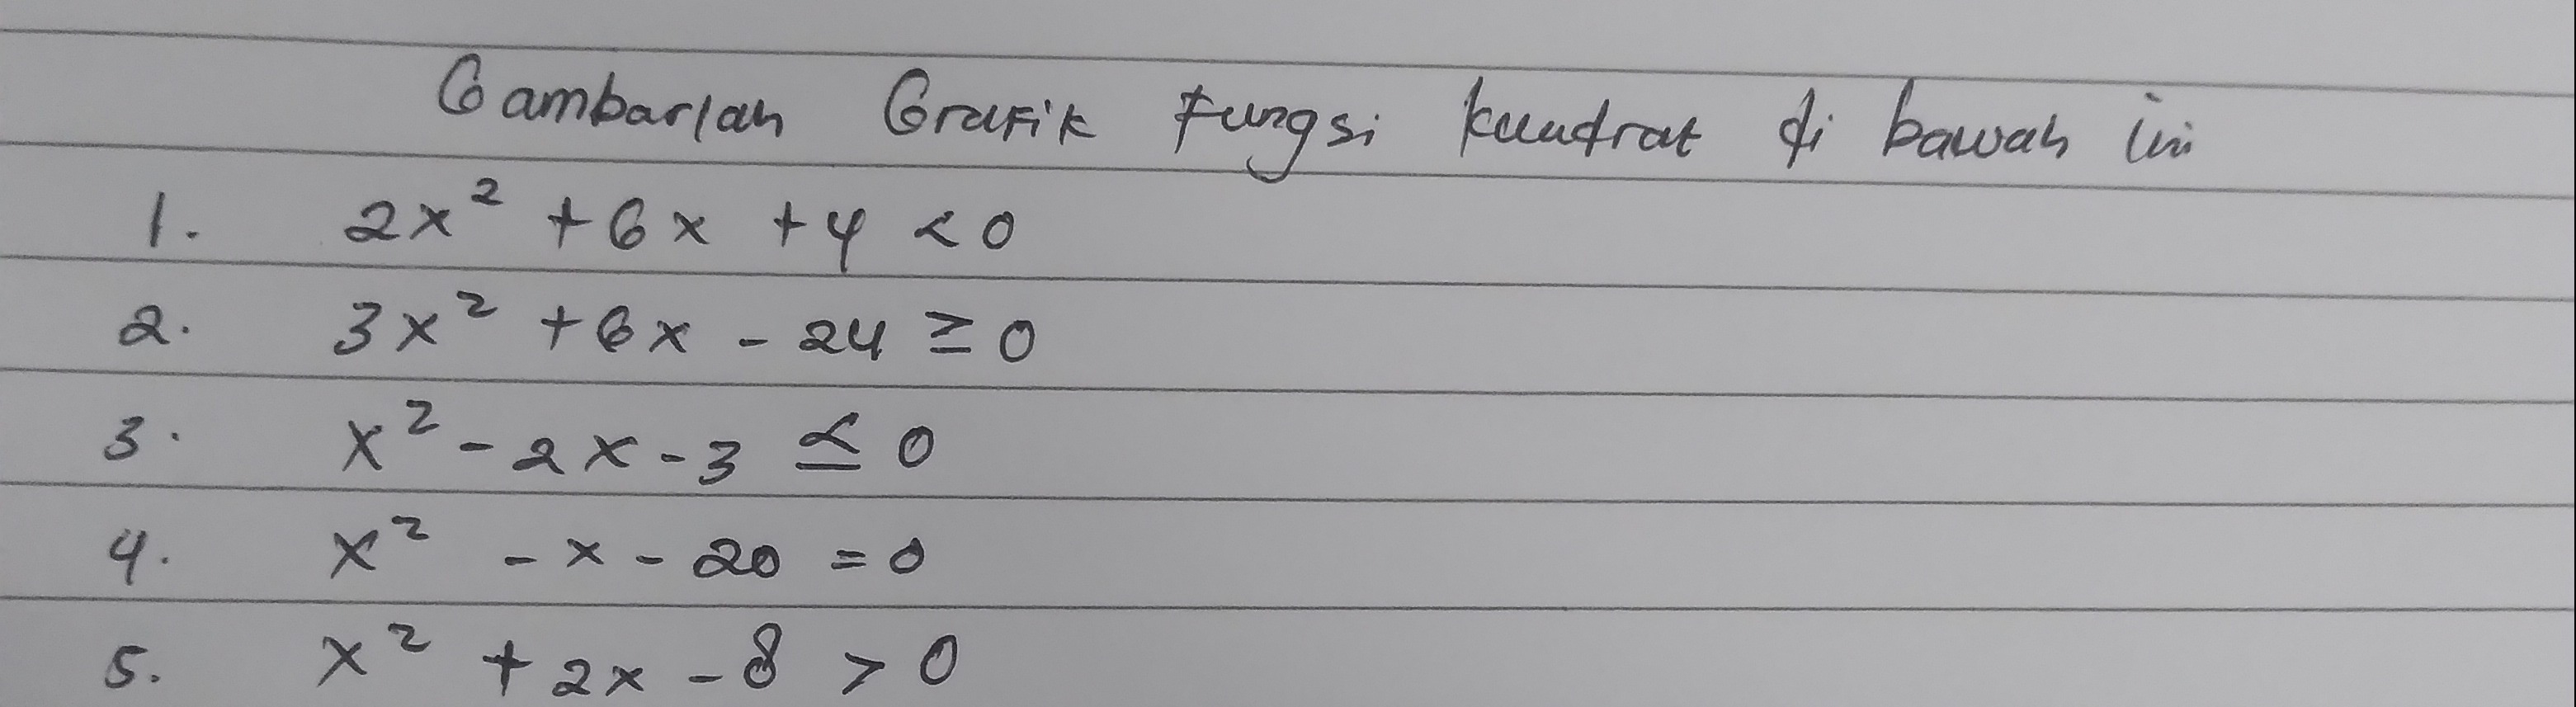 Gambarlah Grafik Fungsi kuadrat di bawah ini
1. 2x² + 6x + 4 < 0
2. 3x² + 6x - 24 ≥ 0
3. x² - 2x - 3 ≤ 0
4. x² - x - 20 = 0
5. x² + 2x - 8 > 0